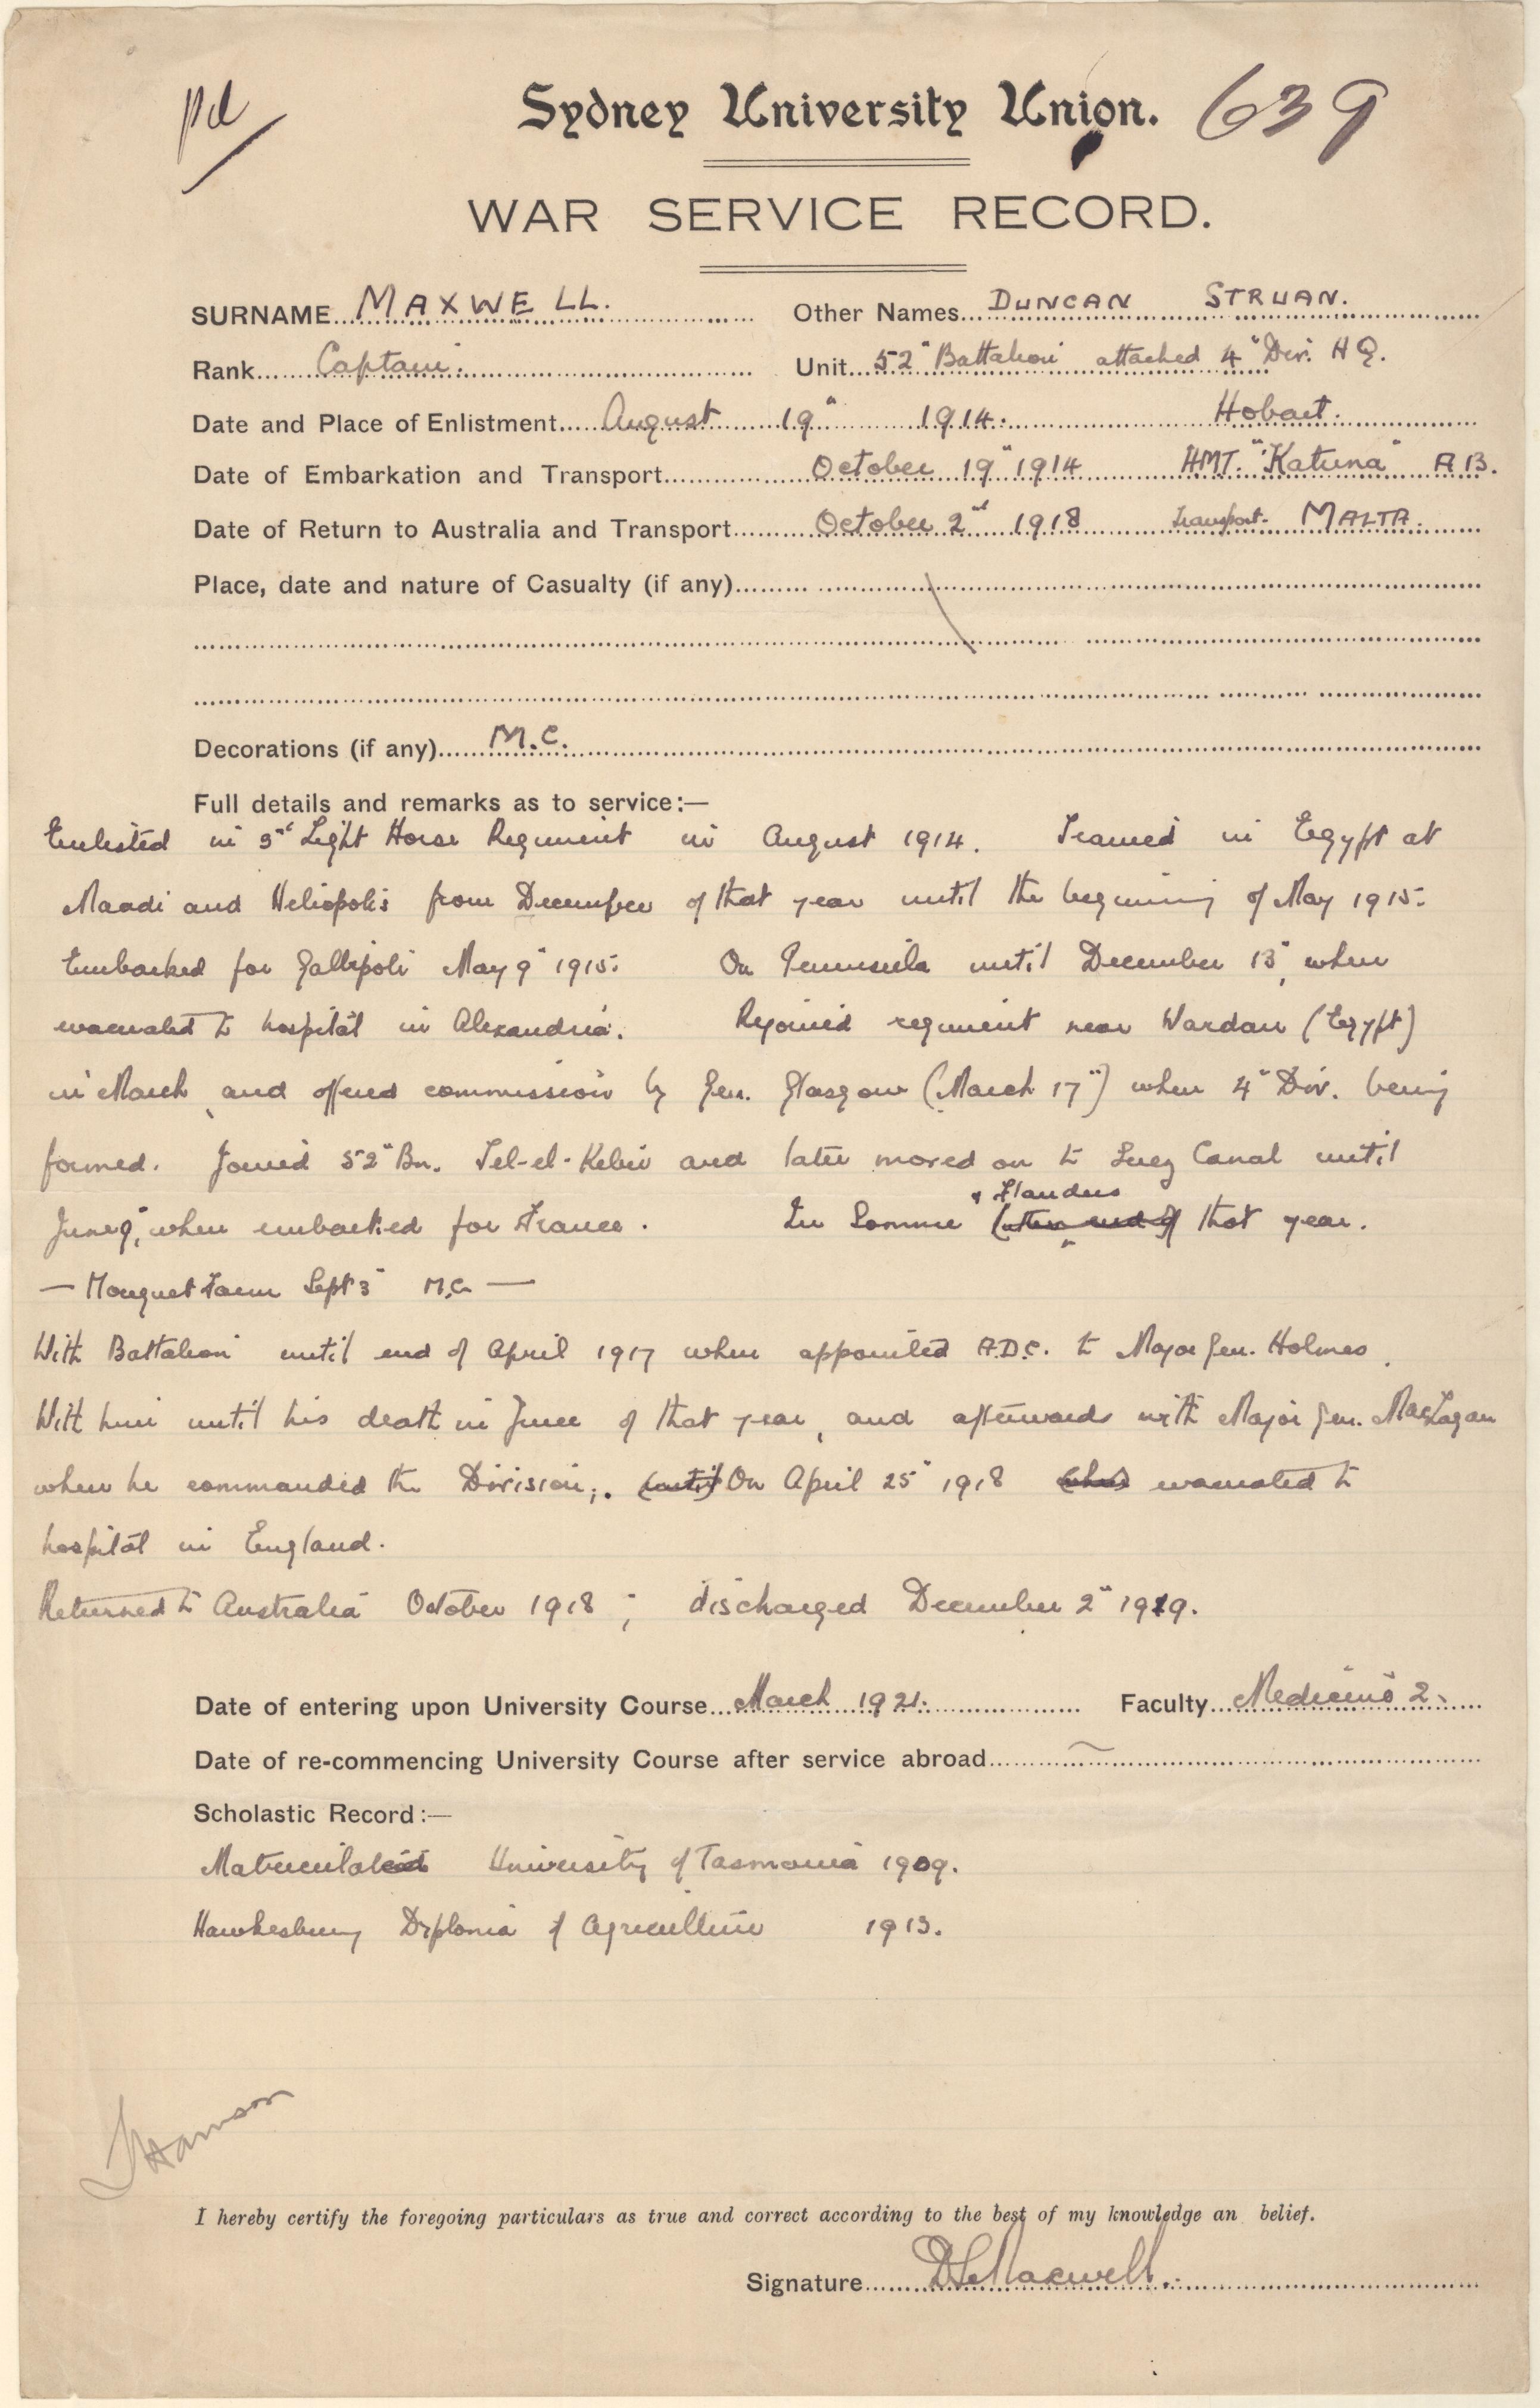 pd/
Sydney University Union. 639
WAR SERVICE RECORD.
SURNAME MAXWELL. Other Names DUNCAN STRUAN.
Rank Captain. Unit 52" Battalion attached 4" Div. H Q.
Date and Place of Enlistment August 19" 1914. Hobart.
Date of Embarkation and Transport October 19" 1914 HMT. "Katuna" A 13.
Date of Return to Australia and Transport October 2nd 1918 Transport- MALTA.
Place, date and nature of Casualty (if any)
Decorations (if any) M.C.
Full details and remarks as to service:—
Enlisted in 3rd Light Horse Regiment in August 1914. Trained in Egypt at
Maadi and Heliopolis from December of that year until the beginning of May 1915.
Embarked for Gallipoli May 9" 1915. On Peninsula until December 13", when
evacuated to hospital in Alexandria. Rejoined regiment near Wardan (Egypt)
in March, and offered commission by Gen. Glasgow (March 17") when 4" Div. being
formed. Joined 52" Bn. Tel-el-Kebir and later moved on to Suez Canal until
June 9", when embarked for France. In Somme & Flanders (latter end of that year.
— Mouquet Farm Sept 3" M.C. —
With Battalion until end of April 1917 when appointed A.D.C. to Major Gen. Holmes.
With him until his death in June of that year, and afterwards with Major Gen. MacLagan
when he commanded the Division;. (until) On April 25" 1918 (when) evacuated to
hospital in England.
Returned to Australia October 1918; discharged December 2" 1919.
Date of entering upon University Course March 1921. Faculty Medicine 2.
Date of re-commencing University Course after service abroad
Scholastic Record:—
Matriculated University of Tasmania 1909.
Hawkesbury Diploma of Agriculture 1913.
I hereby certify the foregoing particulars as true and correct according to the best of my knowledge an belief.
Signature DSMaxwell.